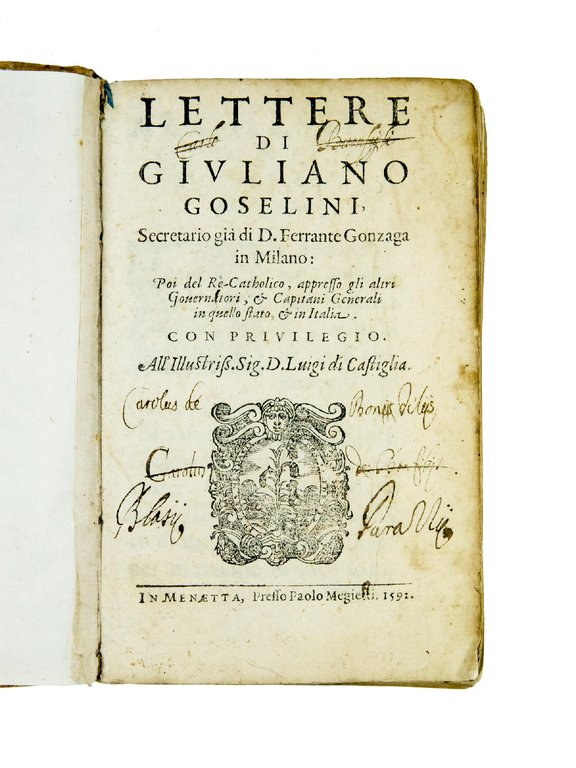 LETTERE
DI
GIVLIANO
GOSELINI,
Secretario già di D. Ferrante Gonzaga
in Milano:
Poi del Rè Catholico, appresso gli altri
Gouernatori, & Capitani Generali
in quello stato, & in Italia.
CON PRIVILEGIO.
All'Illustriss. Sig. D. Luigi di Castiglia.
Carolus de
Carolus
Blasij
IN MENÆTTA, Presso Paolo 159